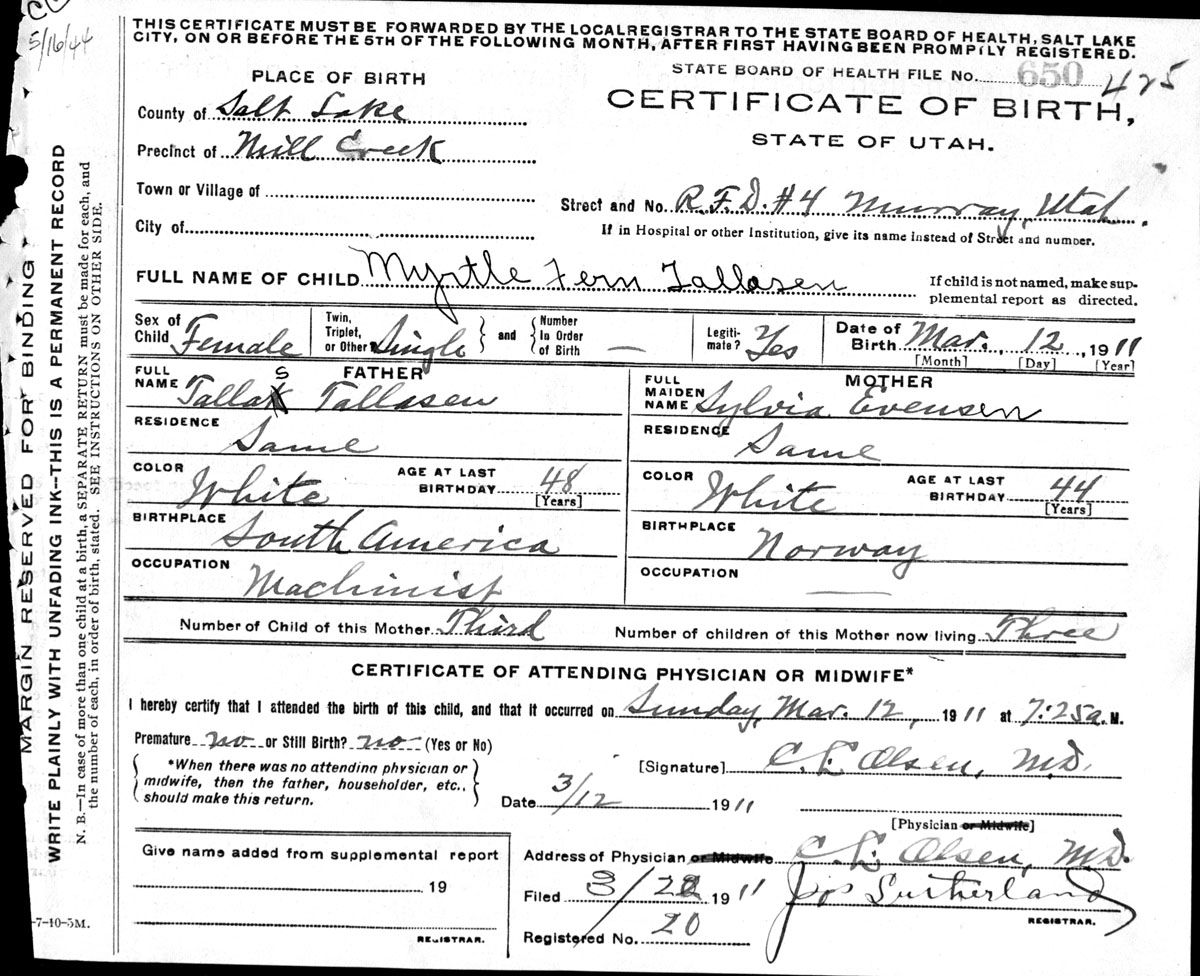 5/16/44
THIS CERTIFICATE MUST BE FORWARDED BY THE LOCAL REGISTRAR TO THE STATE BOARD OF HEALTH, SALT LAKE
CITY, ON OR BEFORE THE 5TH OF THE FOLLOWING MONTH, AFTER FIRST HAVING BEEN PROMPTLY REGISTERED.
STATE BOARD OF HEALTH FILE No. 650 425
PLACE OF BIRTH
CERTIFICATE OF BIRTH,
STATE OF UTAH.
County of Salt Lake
Precinct of Mill Creek
Town or Village of
Street and No. R.F.D. #4 Murray, Utah.
City of
If in Hospital or other Institution, give its name instead of Street and number.
FULL NAME OF CHILD Myrtle Fern Tallasen
If child is not named, make sup-
plemental report as directed.
Sex of Child Female
Twin, Triplet, or Other Single
and
Number In Order of Birth —
Legiti-mate? Yes
Date of Birth Mar. 12, 1911
[Month] [Day] [Year]
FATHER
FULL NAME Tallak S Tallasen
RESIDENCE Same
COLOR White AGE AT LAST BIRTHDAY 48 [Years]
BIRTHPLACE South America
OCCUPATION Machinist
MOTHER
FULL MAIDEN NAME Sylvia Evensen
RESIDENCE Same
COLOR White AGE AT LAST BIRTHDAY 44 [Years]
BIRTHPLACE Norway
OCCUPATION —
Number of Child of this Mother Third Number of children of this Mother now living Three
CERTIFICATE OF ATTENDING PHYSICIAN OR MIDWIFE*
I hereby certify that I attended the birth of this child, and that it occurred on Sunday, Mar. 12, 1911 at 7:25a. M.
Premature no or Still Birth? no (Yes or No)
*When there was no attending physician or
midwife, then the father, householder, etc.,
should make this return.
[Signature] C. L. Olsen, M.D.
Date 3/12 1911
[Physician or Midwife]
Address of Physician or Midwife C. L. Olsen, M.D.
Give name added from supplemental report
19
REGISTRAR.
Filed 3/ 1911 Jos Sutherland
REGISTRAR.
Registered No. 20
-7-10-5M.
MARGIN RESERVED FOR BINDING
WRITE PLAINLY WITH UNFADING INK—THIS IS A PERMANENT RECORD
N. B.—In case of more than one child at a birth, a SEPARATE RETURN must be made for each, and
the number of each, in order of birth, stated. SEE INSTRUCTIONS ON OTHER SIDE.